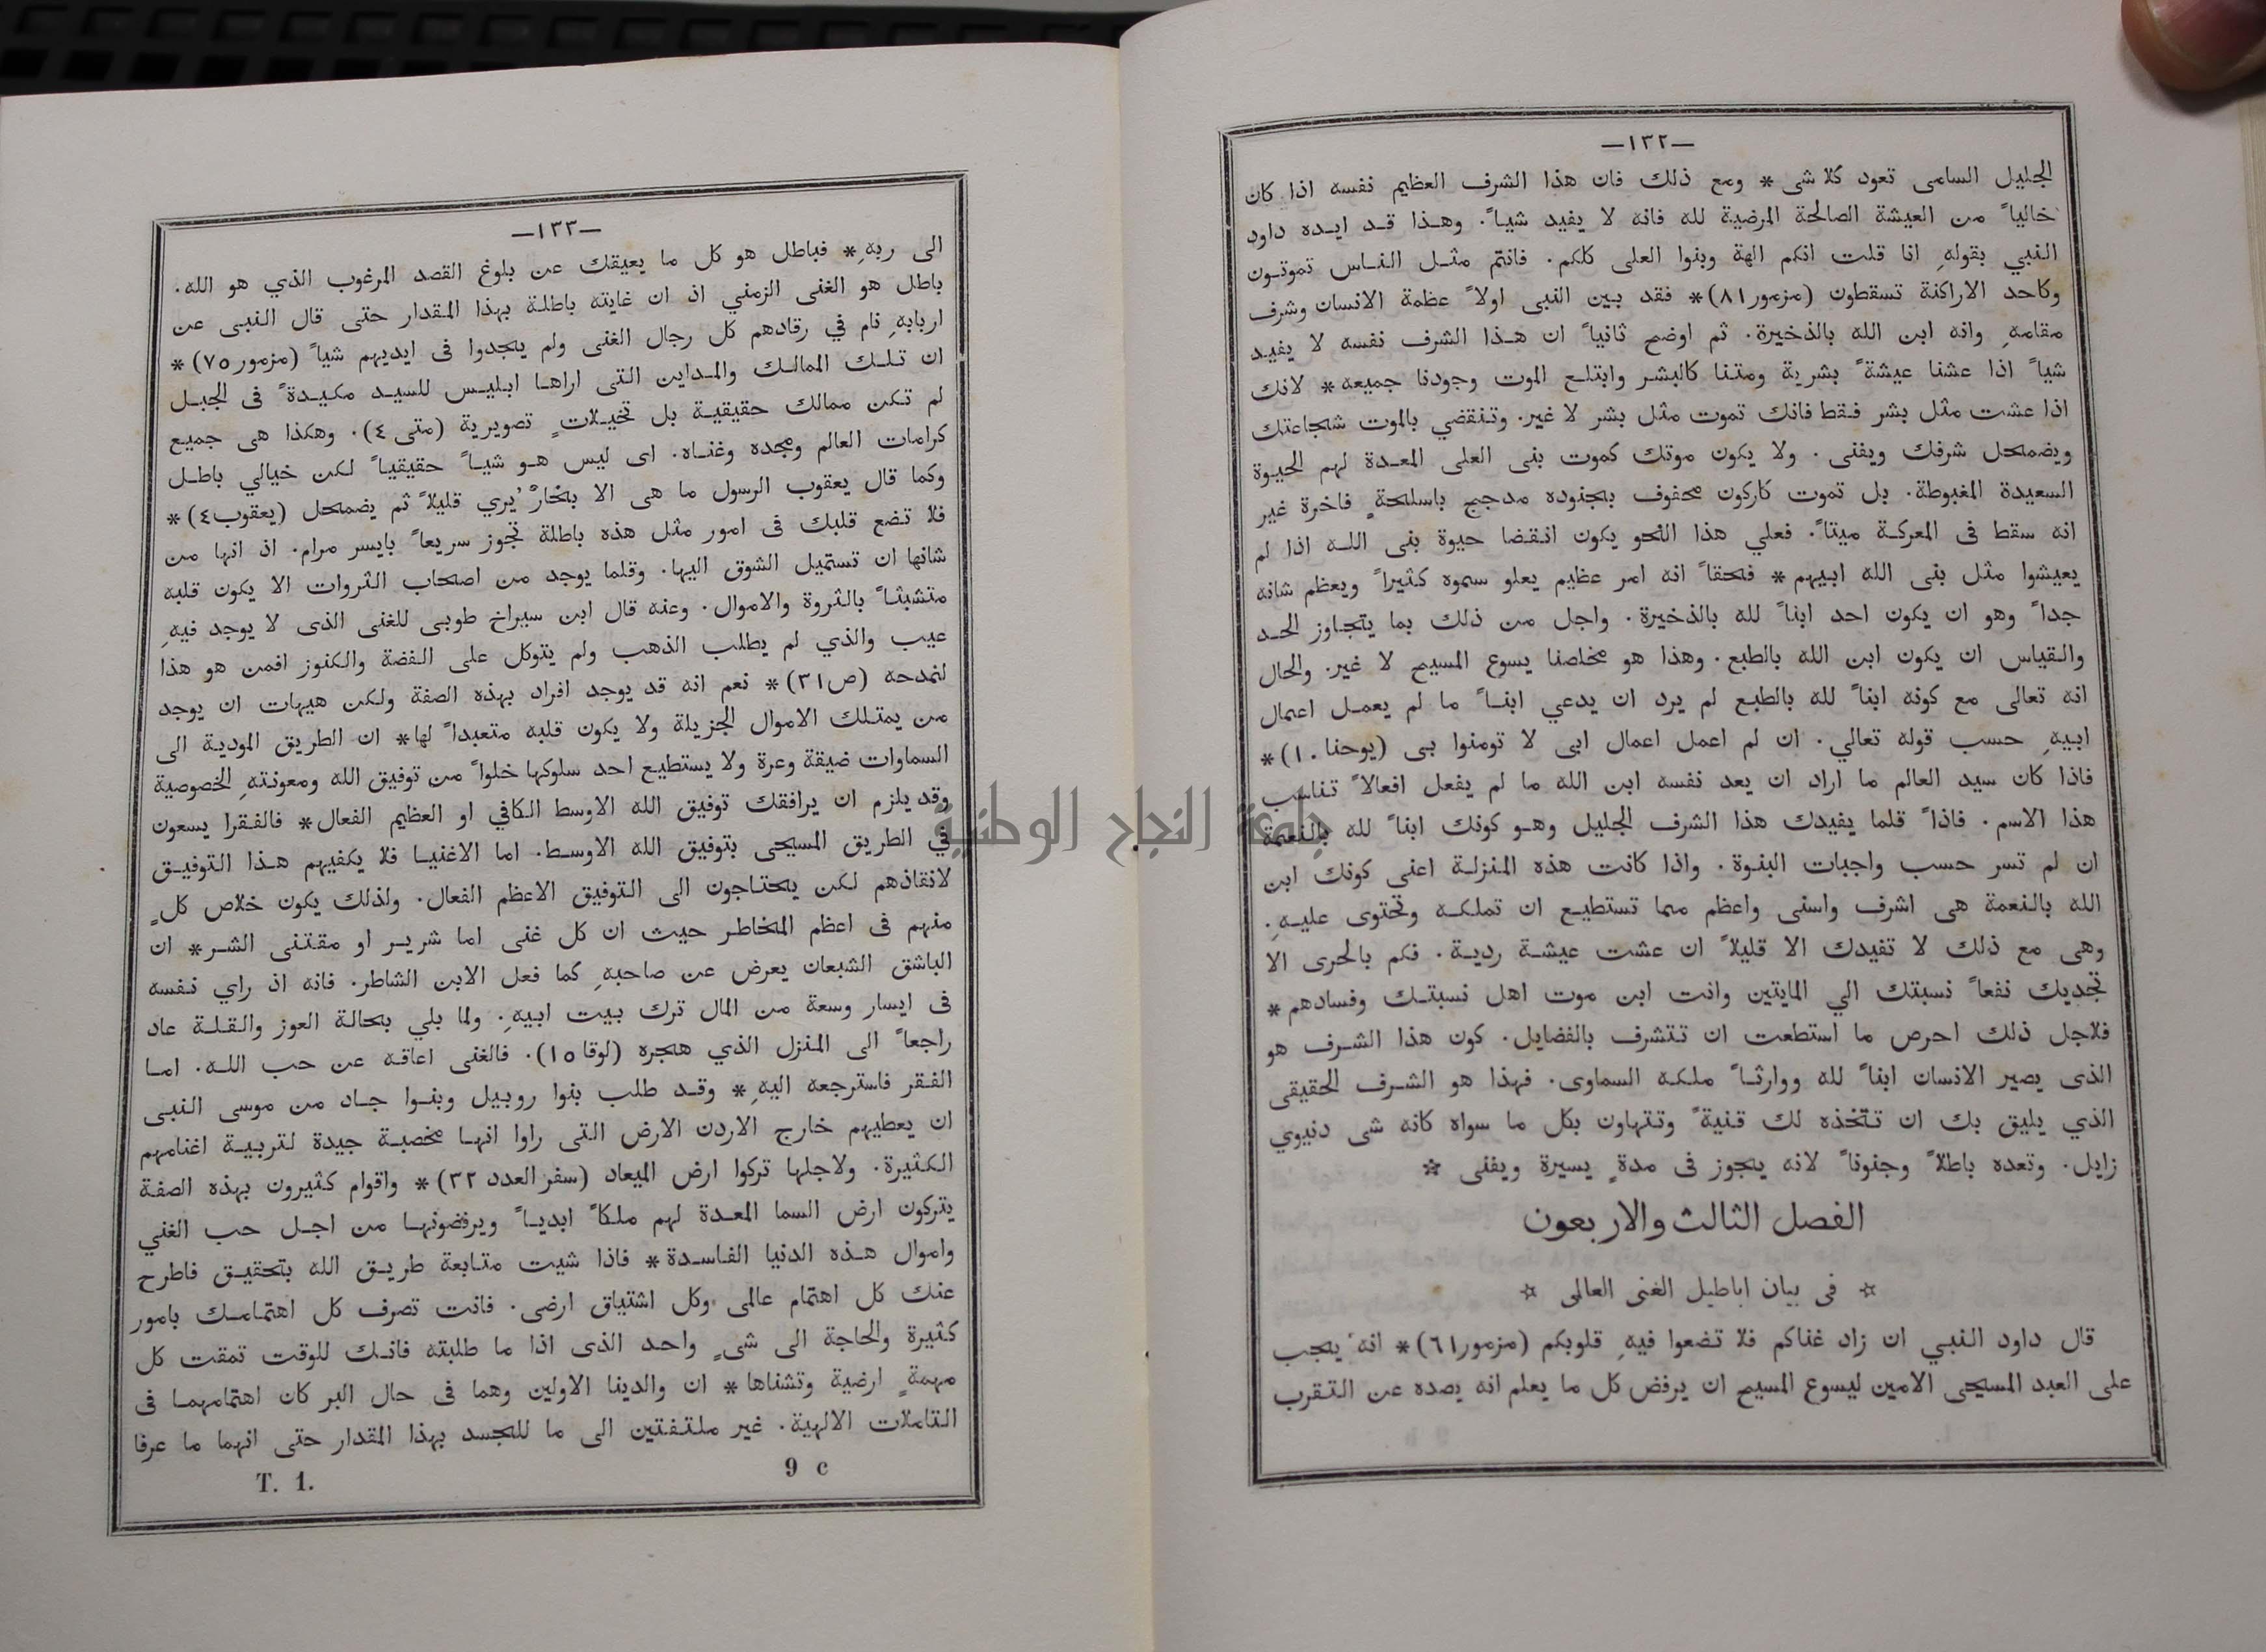 —١٣٢—
الجليل السامى تعود كلا شى* ومع ذلك فان هذا الشرف العظيم نفسه اذا كان
خالياً من العيشة الصالحة المرضية لله فانه لا يفيد شياً. وهذا قد ايده داود
النبي بقولهِ انا قلت انكم الهة وبنوا العلى كلكم. فانتم مثل الناس تموتون
وكاحد الاراكنة تسقطون (مزمور٨١)* فقد بين النبى اولاً عظمة الانسان وشرف
مقامهِ وانه ابن الله بالذخيرة. ثم اوضح ثانياً ان هذا الشرف نفسه لا يفيد
شياً اذا عشنا عيشةً بشرية ومتنا كالبشر وابتلع الموت وجودنا جميعه* لانك
اذا عشت مثل بشر فقط فانك تموت مثل بشر لا غير. وتنقضي بالموت شجاعتك
ويضمحل شرفك ويفنى. ولا يكون موتك كموت بنى العلى المعدة لهم الحيوة
السعيدة المغبوطة. بل تموت كاركون محفوف بجنوده مدجج باسلحةٍ فاخرة غير
انه سقط فى المعركة ميتاً. فعلي هذا النحو يكون انقضا حيوة بنى الله اذا لم
يعيشوا مثل بنى الله ابيهم* فحقاً انه امر عظيم يعلو سموه كثيراً ويعظم شانه
جداً وهو ان يكون احد ابناً لله بالذخيرة. واجل من ذلك بما يتجاوز الحد
والقياس ان يكون ابن الله بالطبع. وهذا هو مخلصنا يسوع المسيح لا غير. والحال
انه تعالى مع كونه ابناً لله بالطبع لم يرد ان يدعي ابناً ما لم يعمل اعمال
ابيهِ حسب قوله تعالي. ان لم اعمل اعمال ابى لا تومنوا بى (يوحنا١٠)*
فاذا كان سيد العالم ما اراد ان يعد نفسه ابن الله ما لم يفعل افعالاً تناسب
هذا الاسم. فاذاً قلما يفيدك هذا الشرف الجليل وهو كونك ابناً لله بالنعمة
ان لم تسر حسب واجبات البنوة. واذا كانت هذه المنزلة اعنى كونك ابن
الله بالنعمة هى اشرف واسنى واعظم مما تستطيع ان تملكه وتحتوى عليهِ.
وهى مع ذلك لا تفيدك الا قليلاً ان عشت عيشة ردية. فكم بالحرى الا
تجديك نفعاً نسبتك الي المايتين وانت ابن موت اهل نسبتك وفسادهم*
فلاجل ذلك احرص ما استطعت ان تتشرف بالفضايل. كون هذا الشرف هو
الذى يصير الانسان ابناً لله ووارثاً ملكه السماوى. فهذا هو الشرف الحقيقى
الذي يليق بك ان تتخذه لك قنيةً وتتهاون بكل ما سواه كانه شى دنيوي
زايل. وتعده باطلاً وجنوناً لانه يجوز فى مدةٍ يسيرة ويفنى ☆
الفصل الثالث والاربعون
☆ فى بيان اباطيل الغنى العالمى ☆
قال داود النبي ان زاد غناكم فلا تضعوا فيهِ قلوبكم (مزمور٦١)* انه يجب
على العبد المسيحى الامين ليسوع المسيح ان يرفض كل ما يعلم انه يصده عن التقرب
—١٣٣—
الى ربهِ* فباطل هو كل ما يعيقك عن بلوغ القصد المرغوب الذي هو الله.
باطل هو الغنى الزمني اذ ان غايته باطلة بهذا المقدار حتى قال النبى عن
اربابهِ نام في رقادهم كل رجال الغنى ولم يجدوا فى ايديهم شياً (مزمور٧٥)*
ان تلك الممالك والمداين التى اراها ابليس للسيد مكيدةً فى الجبل
لم تكن ممالك حقيقية بل تخيلاتٍ تصويرية (متى٤). وهكذا هى جميع
كرامات العالم ومجده وغناه. اى ليس هو شياً حقيقياً لكن خيالي باطل
وكما قال يعقوب الرسول ما هى الا بخارٌ يُري قليلاً ثم يضمحل (يعقوب٤)*
فلا تضع قلبك فى امور مثل هذه باطلة تجوز سريعاً بايسر مرام. اذ انها من
شانها ان تستميل الشوق اليها. وقلما يوجد من اصحاب الثروات الا يكون قلبه
متشبثاً بالثروة والاموال. وعنه قال ابن سيراخ طوبى للغنى الذى لا يوجد فيهِ
عيب والذي لم يطلب الذهب ولم يتوكل على الفضة والكنوز افمن هو هذا
لنمدحه (ص٣١)* نعم انه قد يوجد افراد بهذه الصفة ولكن هيهات ان يوجد
من يمتلك الاموال الجزيلة ولا يكون قلبه متعبداً لها* ان الطريق المودية الى
السماوات ضيقة وعرة ولا يستطيع احد سلوكها خلواً من توفيق الله ومعونتهِ الخصوصية
وقد يلزم ان يرافقك توفيق الله الاوسط الكافي او العظيم الفعال* فالفقرا يسعون
في الطريق المسيحى بتوفيق الله الاوسط. اما الاغنيا فلا يكفيهم هذا التوفيق
لانقاذهم لكن يحتاجون الى التوفيق الاعظم الفعال. ولذلك يكون خلاص كلٍ
منهم فى اعظم المخاطر حيث ان كل غنى اما شرير او مقتنى الشر* ان
الباشق الشبعان يعرض عن صاحبهِ كما فعل الابن الشاطر. فانه اذ راي نفسه
فى ايسار وسعة من المال ترك بيت ابيهِ. ولما بلي بحالة العوز والقلة عاد
راجعاً الى المنزل الذي هجره (لوقا١٥). فالغنى اعاقه عن حب الله. اما
الفقر فاسترجعه اليهِ* وقد طلب بنوا روبيل وبنوا جاد من موسى النبى
ان يعطيهم خارج الاردن الارض التى راوا انها مخصبة جيدة لتربية اغنامهم
الكثيرة. ولاجلها تركوا ارض الميعاد (سفر العدد ٣٢)* واقوام كثيرون بهذه الصفة
يتركون ارض السما المعدة لهم ملكاً ابدياً ويرفضونها من اجل حب الغني
واموال هذه الدنيا الفاسدة* فاذا شيت متابعة طريق الله بتحقيق فاطرح
عنك كل اهتمام عالمى وكل اشتياق ارضى. فانت تصرف كل اهتمامك بامور
كثيرة والحاجة الى شىٍ واحد الذى اذا ما طلبته فانك للوقت تمقت كل
مهمةٍ ارضية وتشناها* ان والدينا الاولين وهما فى حال البر كان اهتمامهما فى
التاملات الالهية. غير ملتفتين الى ما للجسد بهذا المقدار حتى انهما ما عرفا
T. 1. 9 c
جامعة النجاح الوطنية